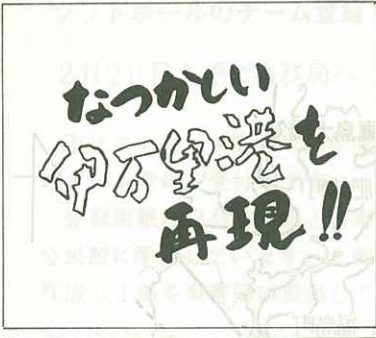 なつかしい
伊万里港を
再現!!